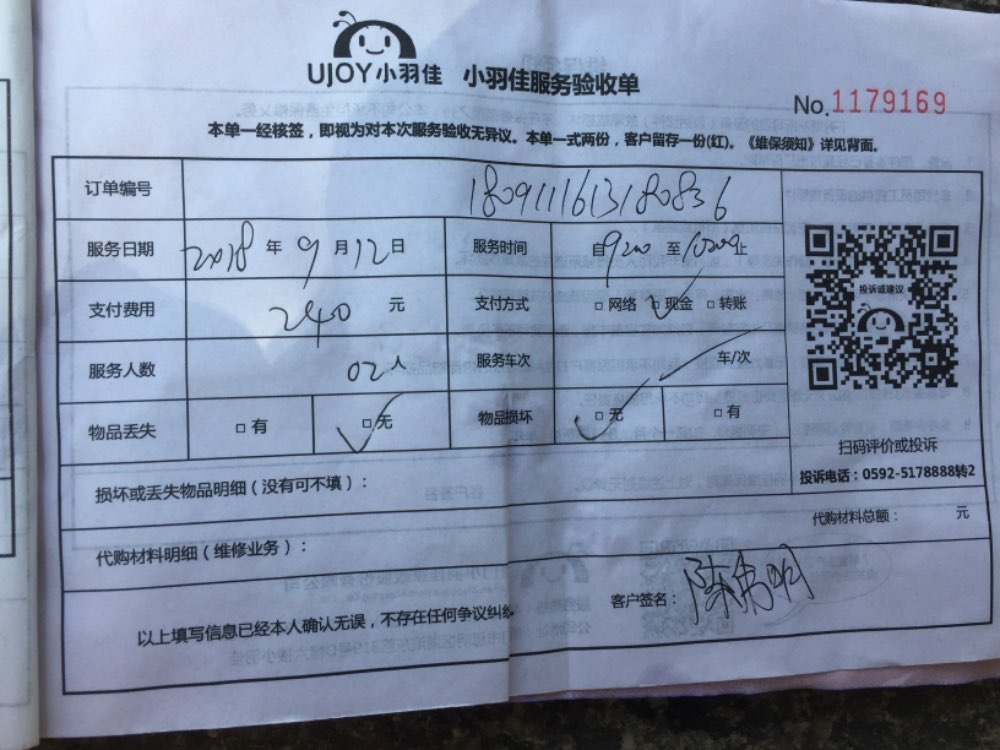 UJOY小羽佳 小羽佳服务验收单
No.1179169
本单一经核签，即视为对本次服务验收无异议。本单一式两份，客户留存一份(红)。《维保须知》详见背面。
订单编号 1809111613180836
服务日期 2018年9月12日 服务时间 自9200 至 止
支付费用 240 元 支付方式 □网络 □现金 □转账
投诉或建议
服务人数 02人 服务车次 车/次
物品丢失 □有 □无 物品损坏 □无 □有
扫码评价或投诉
投诉电话：0592-5178888转2
损坏或丢失物品明细（没有可不填）：
代购材料总额： 元
代购材料明细（维修业务）：
客户签名：
以上填写信息已经本人确认无误，不存在任何争议纠